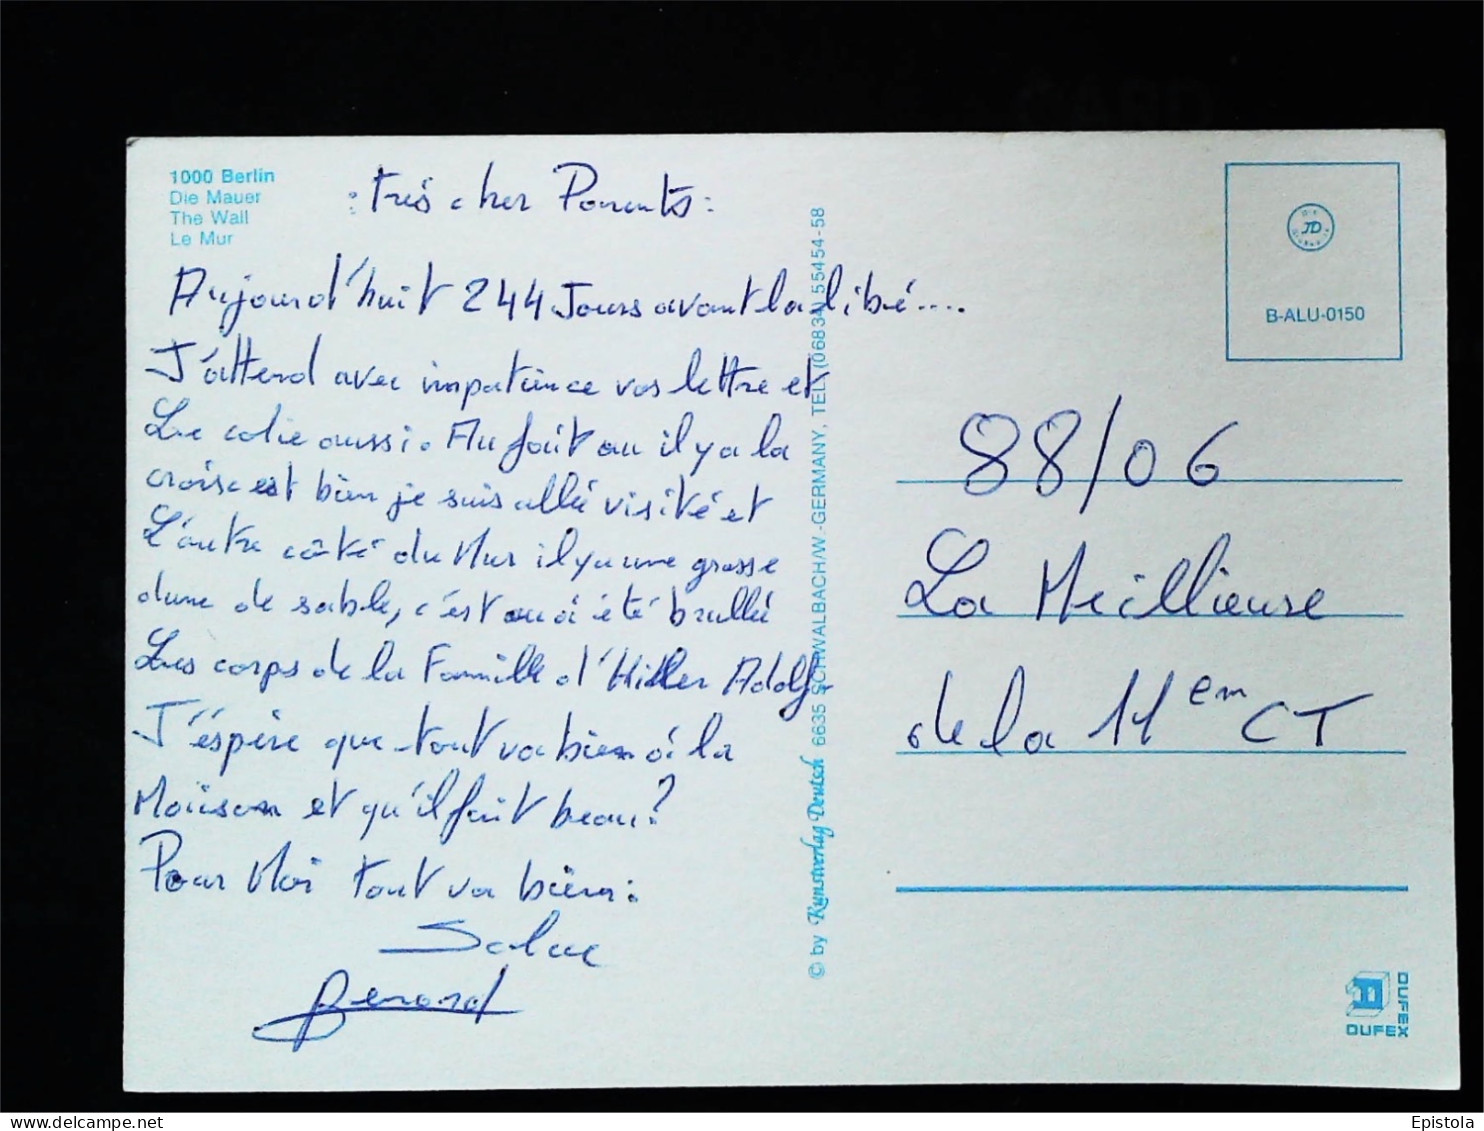 1000 Berlin
Die Mauer
The Wall
Le Mur
: très cher Parents :
Aujourd'huit 244 Jours avant la libé....
J'attend avec impatience vos lettre et
Le colie aussi. Au fait ou il y a la
croise est bien je suis allé visité et
L'autre côté du Mur il y a une grosse
dune de sable, c'est ou à été brullé
Les corps de la Famille d'Hitler Adolf.
J'éspère que tout va bien à la
Maison et qu'il fait beau?
Pour Moi tout va bien :
Salue
Benard
© by Kunstverlag Deutsch 6635 SCHWALBACH/W.-GERMANY, TEL. (06834) 55454-58
B-ALU-0150
JD
88/06
La Meillieure
de la 11em CT
DUFEX
DUFEX
delcampe.net
Epistola